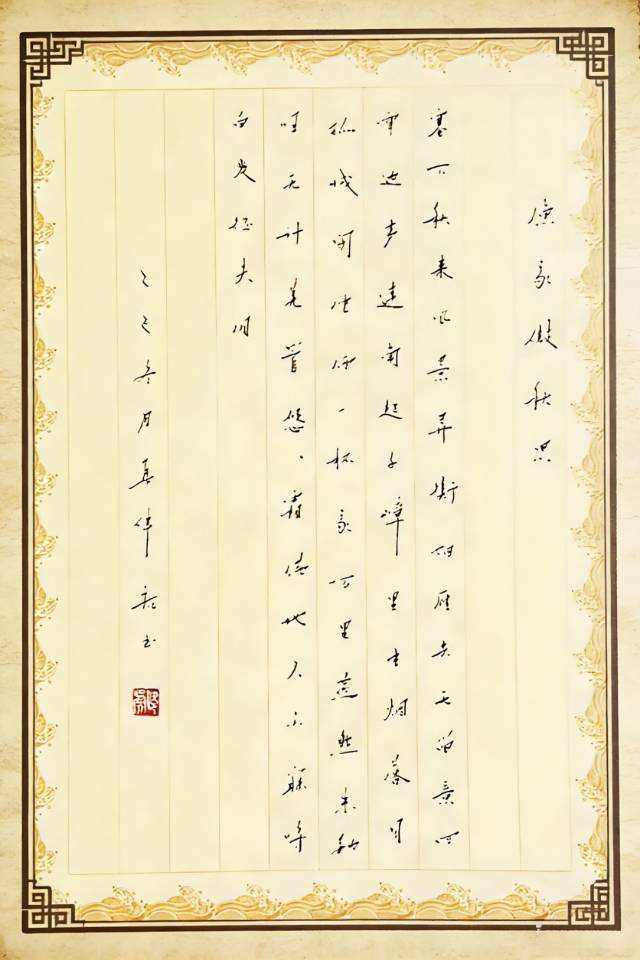 渔家傲秋思
塞下秋来风景异衡阳雁去无留意四
面边声连角起千嶂里长烟落日
孤城闭浊酒一杯家万里燕然未勒
归无计羌管悠、霜满地人不寐将
白发征夫泪
乙巳冬月伟书